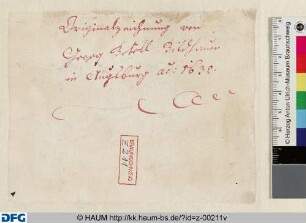 Originalzeichnung von
Georg Petel Bildhauer
in Augsburg ao: 1630.
© Herzog Anton Ulrich-Museum Braunschweig
DFG
© HAUM http://kk.haum-bs.de/?id=z-00211v